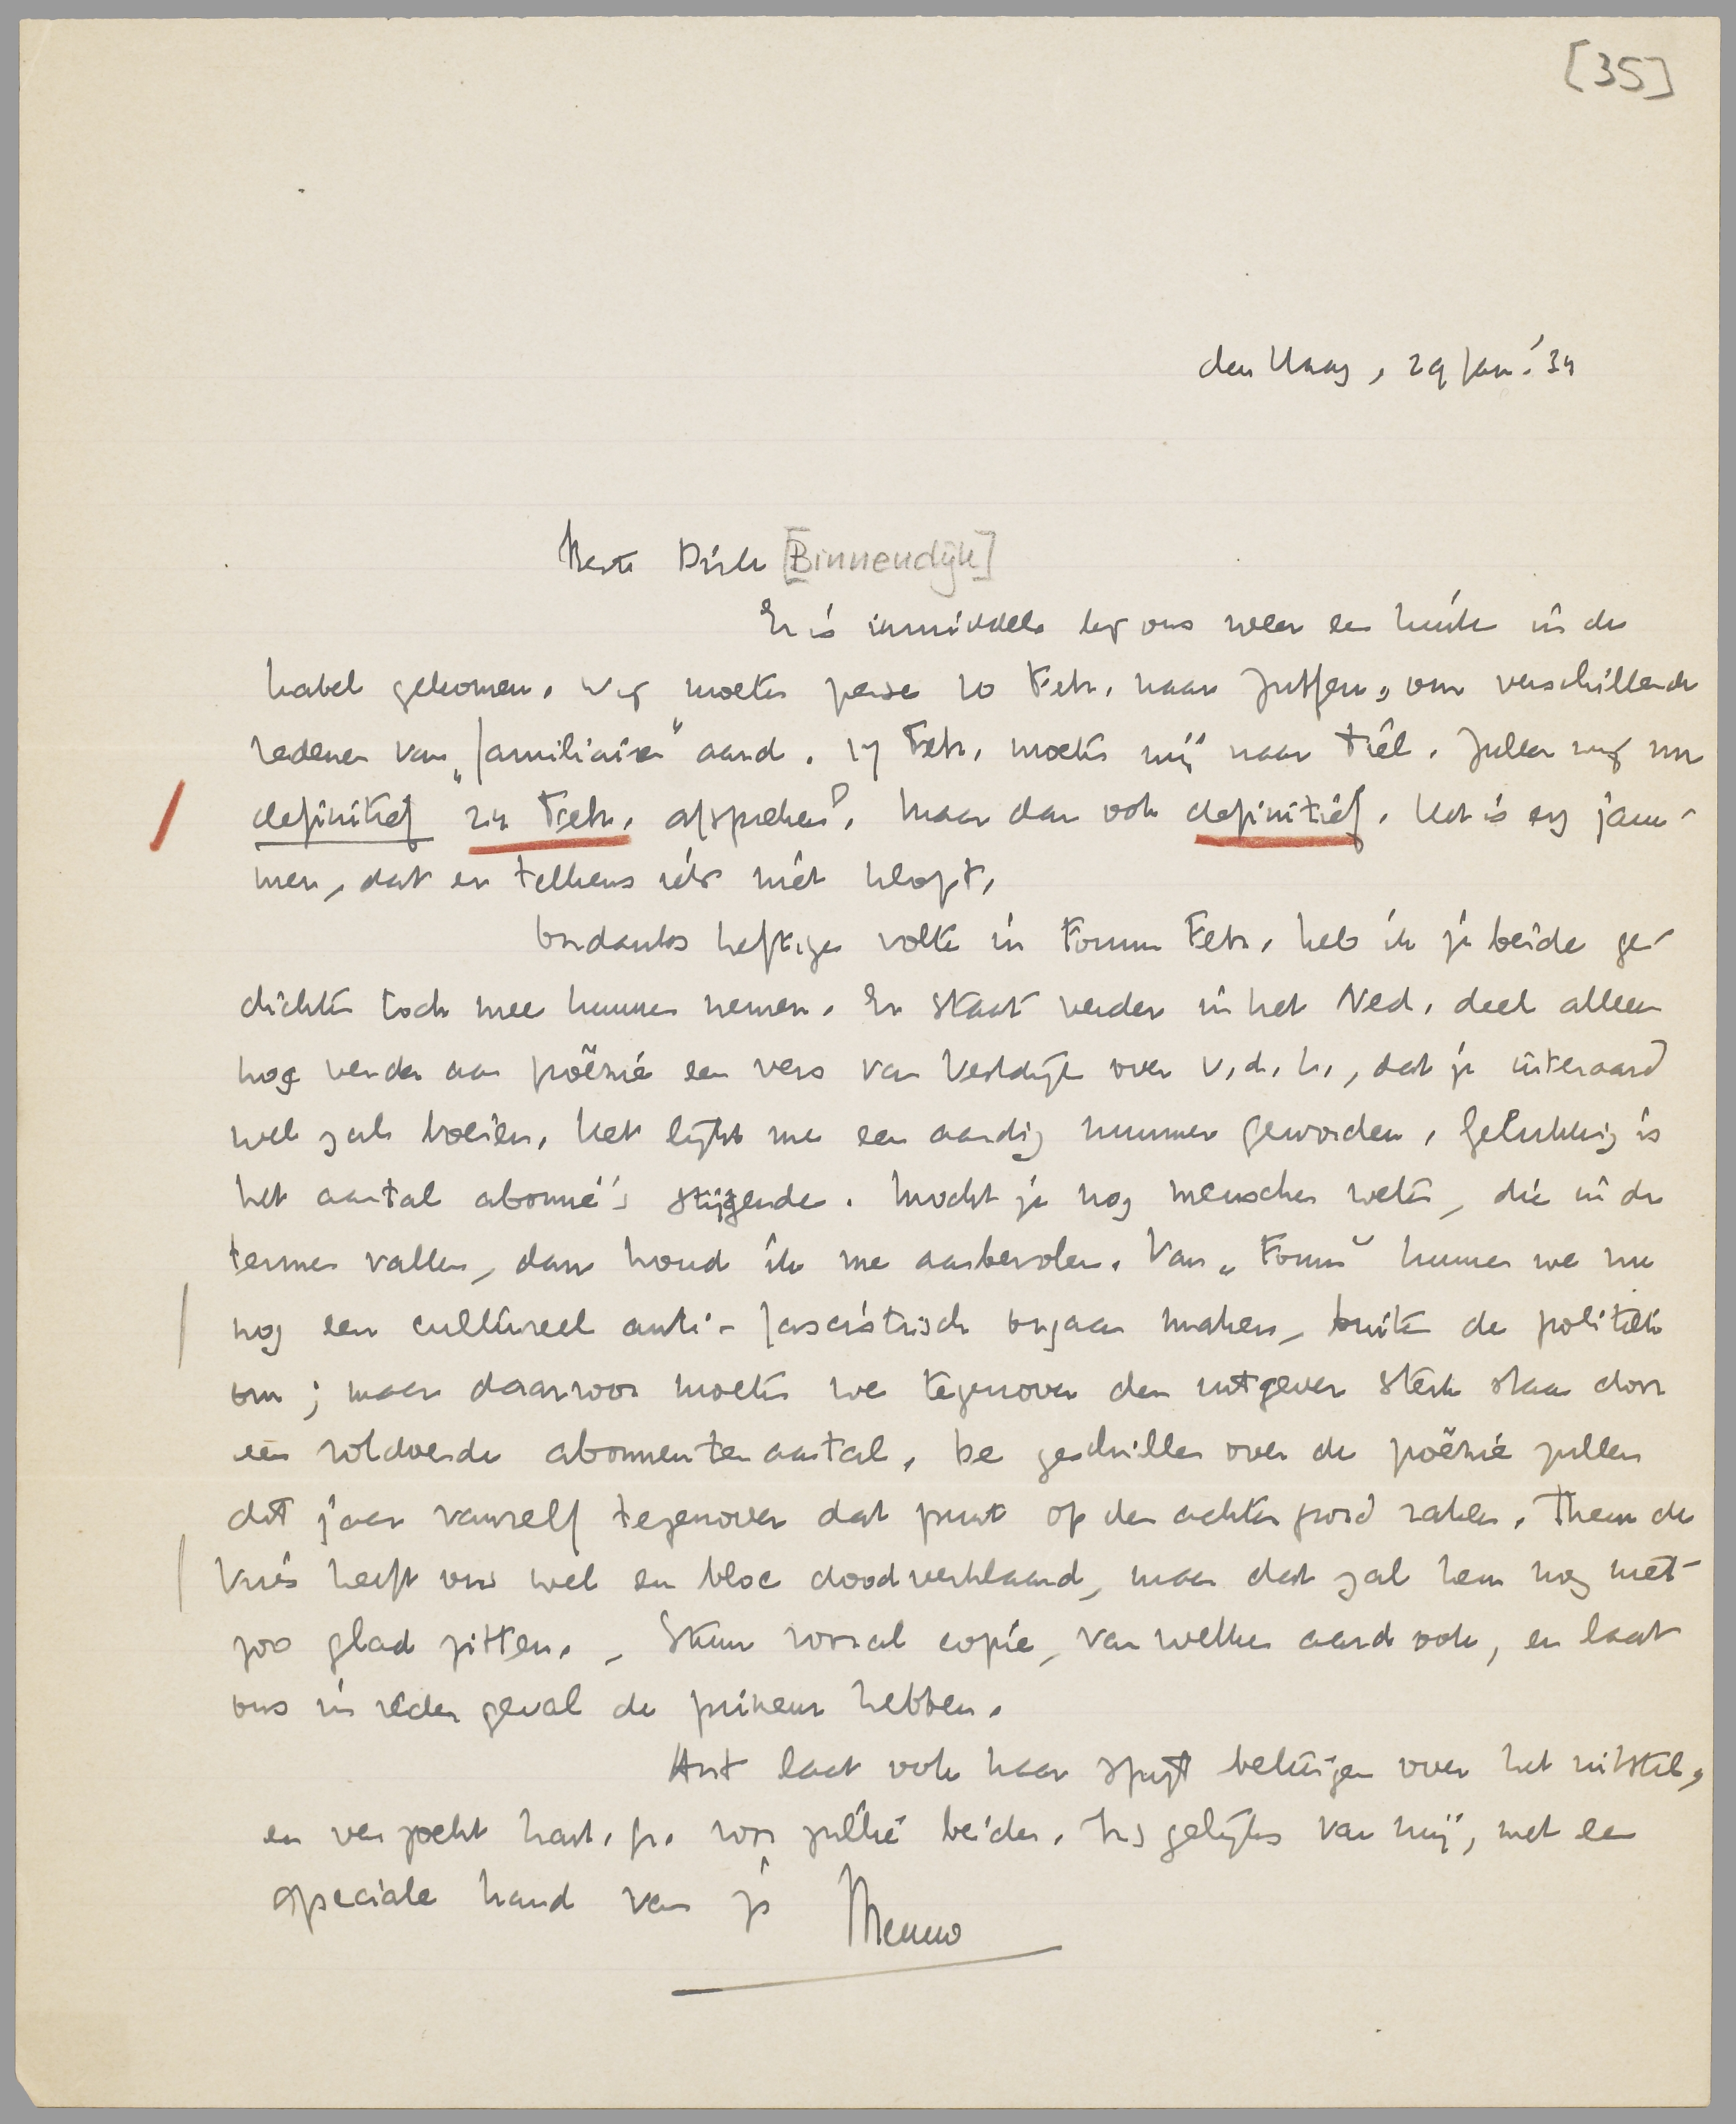 [35]
den Haag, 29 Jan. '34
Beste Dick [Binnendijk]
Er is inmiddels bij ons weer een kink in de
kabel gekomen. Wij moeten persé 10 Febr. naar Zutfen, om verschillende
redenen van „familiairen" aard. 17 Febr. moeten wij naar Tiel. Zullen wij nu
definitief 24 Febr. afspreken? Maar dan ook definitief. Het is erg jam-
mer, dat er telkens iets niet klopt.
Ondanks heftige volte in Forum Febr. heb ik je beide ge-
dichten toch mee kunnen nemen. Er staat verder in het Ned. deel alleen
nog verder aan poëzie een vers van Vestdijk over v.d. L., dat je uiteraard
wel zal boeien. Het lijkt me een aardig nummer geworden. Gelukkig is
het aantal abonné's stijgende. Mocht je nog menschen weten, die in de
termen vallen, dan houd ik me aanbevolen. Van „Forum" kunnen we nu
nog een cultureel anti-fascistisch orgaan maken, buiten de politiek
om; maar daarvoor moeten we tegenover den uitgever sterk staan door
een voldoende abonnententaantal. De geschillen over de poëzie zullen
dit jaar vanzelf tegenover dat punt op den achtergrond raken. Theun de
Vries heeft ons wel en bloc doodverklaard, maar dat zal hem nog niet
zoo glad zitten. – Stuur vooral copie, van welken aard ook, en laat
ons in ieder geval de primeur hebben.
Ant laat ook haar spijt betuigen over het uitstel,
en verzoekt hart. gr. voor jullie beiden. Insgelijks van mij, met een
speciale hand van je Menno